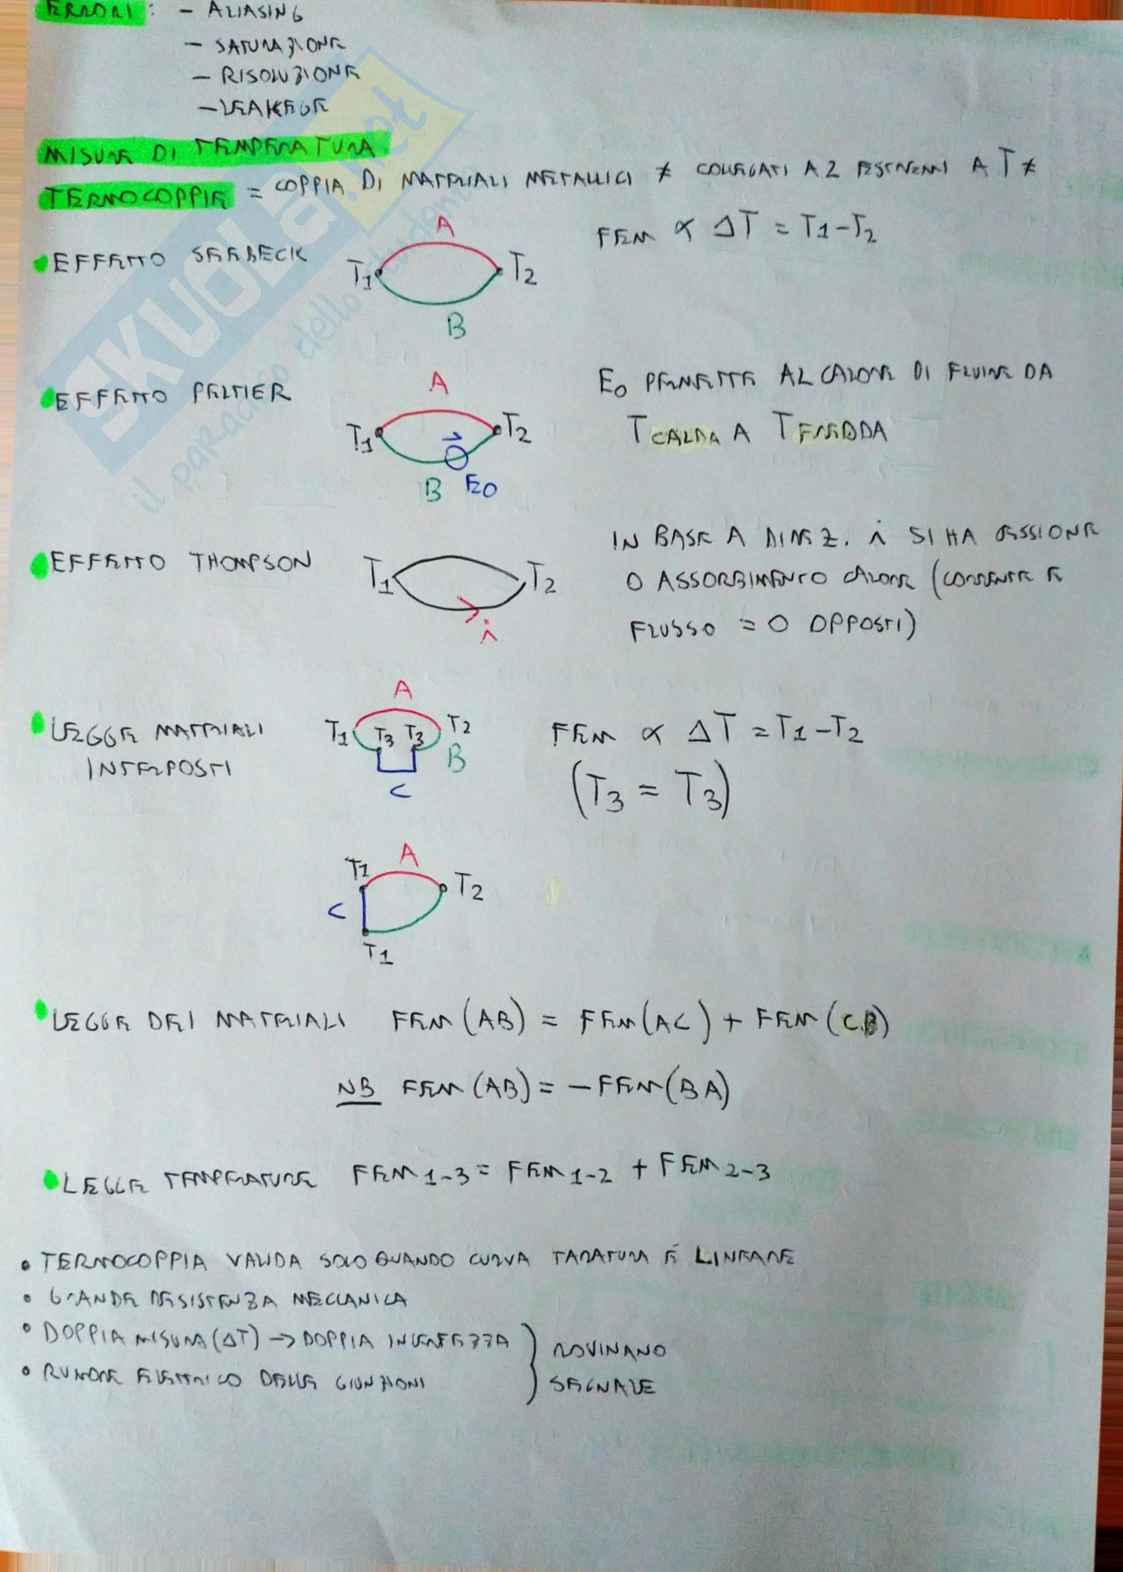 ERRORI: - ALIASING
- SATURAZIONE
- RISOLUZIONE
- LEAKEGE
MISURE DI TEMPERATURA
TERMOCOPPIE = COPPIA DI MATERIALI METALLICI ≠ COLLEGATI A 2 ESTREMI A T ≠
• EFFETTO SEEBECK
A
T1
T2
B
FEM ∝ ΔT = T1-T2
• EFFETTO PELTIER
A
T1
T2
B
E0
E0 PERMETTE AL CALORE DI FLUIRE DA
T CALDA A T FREDDA
• EFFETTO THOMPSON
T1
T2
i
IN BASE A DIREZ. i SI HA CESSIONE
O ASSORBIMENTO CALORE (CORRENTE E
FLUSSO = O OPPOSTI)
• LEGGE MATERIALI
INTERPOSTI
A
T1 T3 T3 T2
B
C
FEM ∝ ΔT = T1-T2
(T3 = T3)
A
T1
T2
C
T1
• LEGGE DEI MATERIALI FEM(AB) = FEM(AC) + FEM(CB)
NB FEM(AB) = -FEM(BA)
• LEGGE TEMPERATURE FEM1-3 = FEM1-2 + FEM2-3
• TERMOCOPPIA VALIDA SOLO QUANDO CURVA TARATURA È LINEARE
• GRANDE RESISTENZA MECCANICA
• DOPPIA MISURA (ΔT) → DOPPIA INCERTEZZA
• RUMORE ELETTRICO DELLE GIUNZIONI
} ROVINANO
SEGNALE
SKUOLA.net
il paradiso dello studente